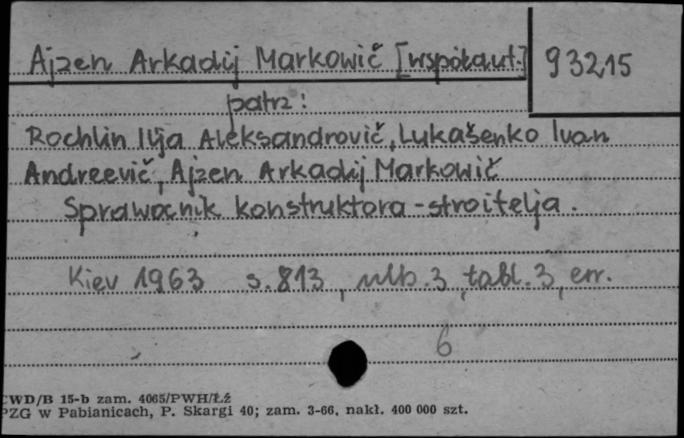 Ajzen Arkadij Markowič [współaut.] 93215
patrz:
Rochlin Ilja Aleksandrovič, Lukašenko Ivan
Andreevič, Ajzen Arkadij Markowič
Sprawočnik konstruktora-stroitelja.
Kiev 1963 s. 813, nlb. 3, tabl. 3, err.
6
CWD/B 15-b zam. 4065/PWH/Łź
PZG w Pabianicach, P. Skargi 40; zam. 3-66, nakł. 400 000 szt.